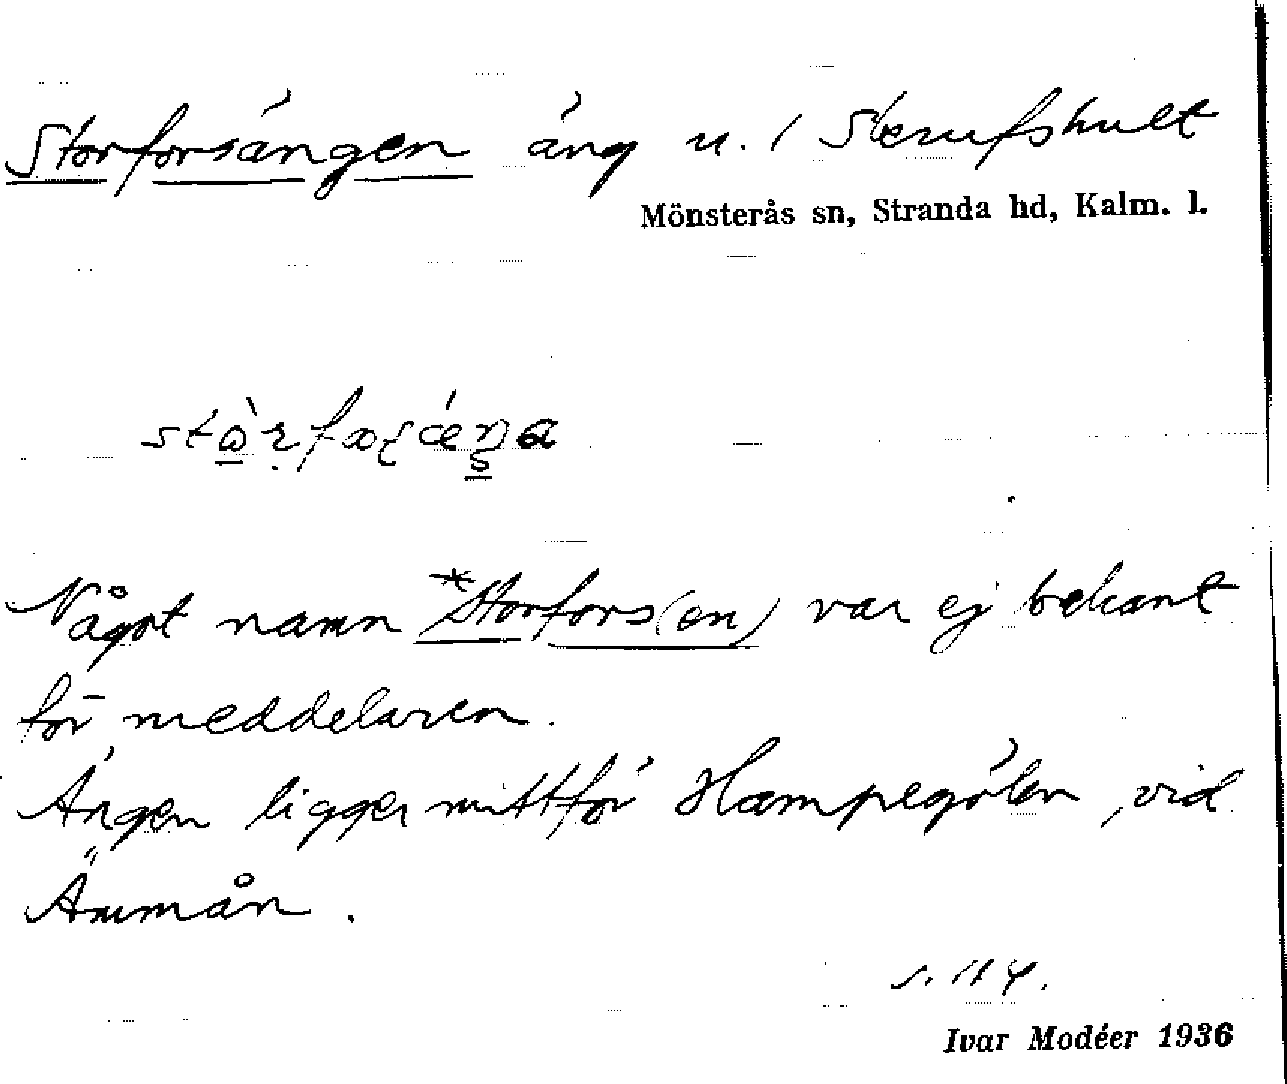 Storforsängen äng u. / Skrufshult
Mönsterås sn, Stranda hd, Kalm. l.
Något namn *Storfors(en) var ej bekant
för meddelaren.
Ängen ligger mittför Hampegölen, vid
Ämmån.
s. 114.
Ivar Modéer 1936